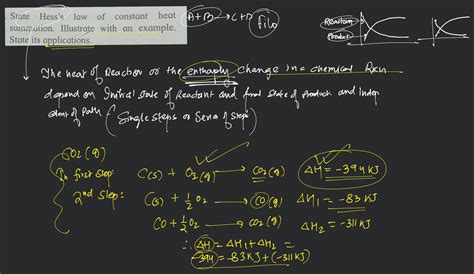 State Hess's law of constant heat
summation. Illustrate with an example.
State its applications.
A+B → C+D
Filo
Reactant
Product
The heat of Reaction or the enthaply change in a chemical Rxn
depend on Initial state of Reactant and final state of product and indep
endent of Path (Single steps or Series of steps)
CO2(g)
In first step: C(s) + O2(g) → CO2(g) ΔH = -394 KJ
2nd step: C(s) + 1/2 O2 → CO(g) ΔH1 = -83 KJ
CO + 1/2 O2 → CO2(g) ΔH2 = -311 KJ
∴ ΔH = ΔH1 + ΔH2 =
-394 = -83 KJ + (-311 KJ)